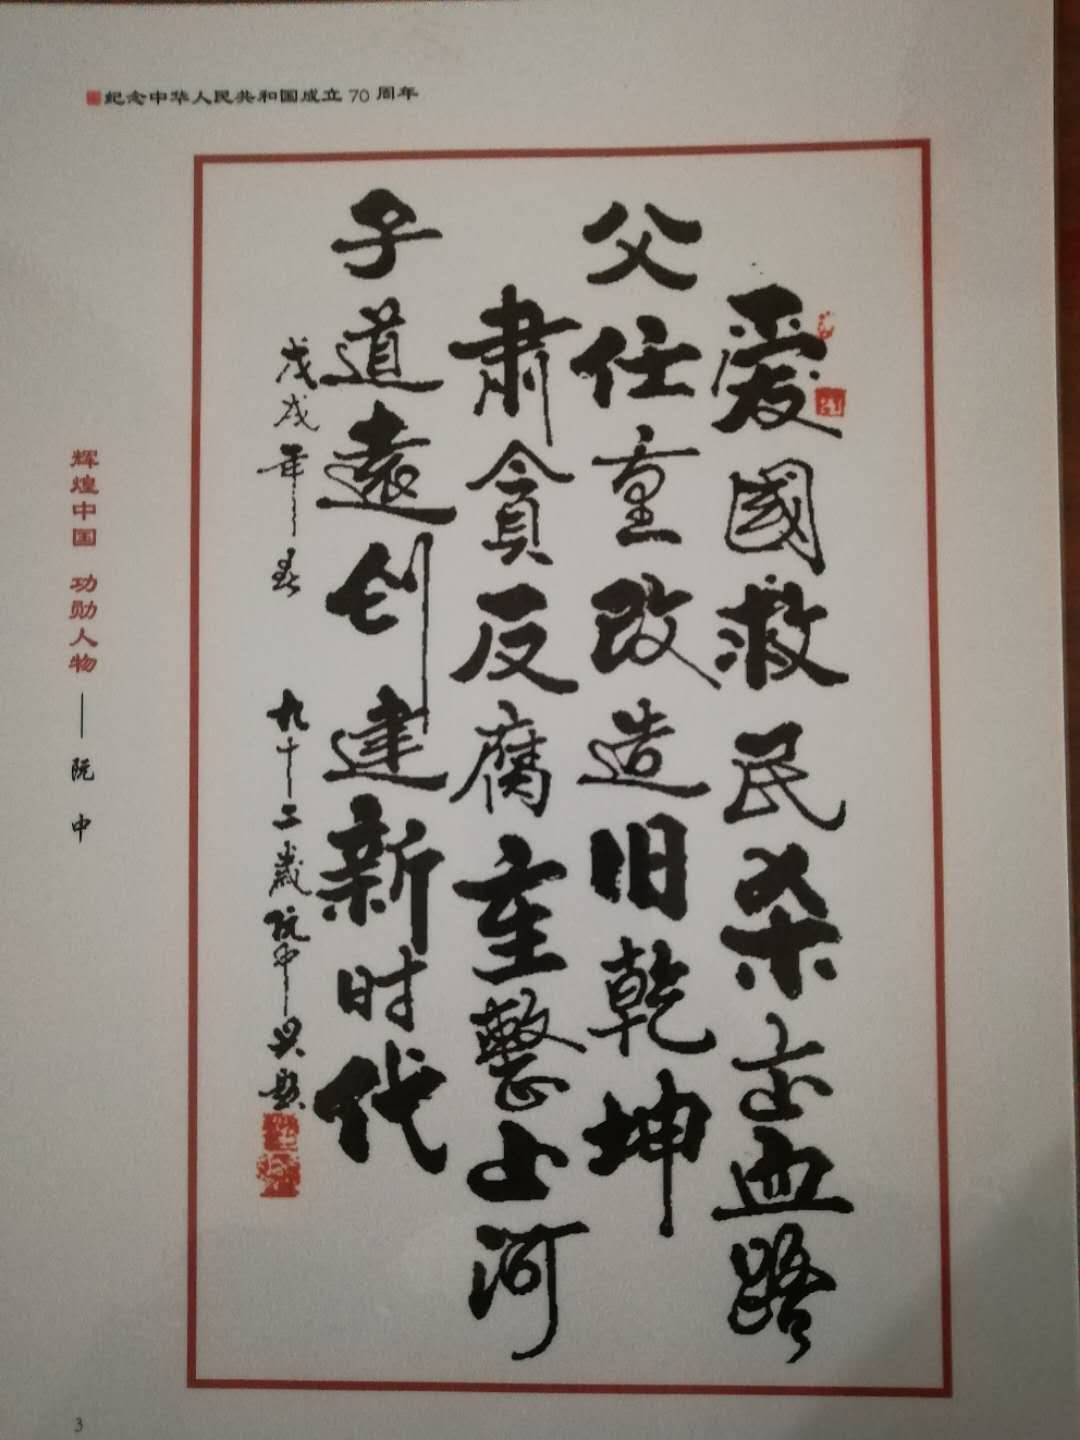 纪念中华人民共和国成立70周年
爱國救民杀出血路
父任重改造旧乾坤
肃贪反腐重整山河
子道遠创建新时代
戊戌年春 九十二歲阮中 题
辉煌中国 功勋人物——阮中
3